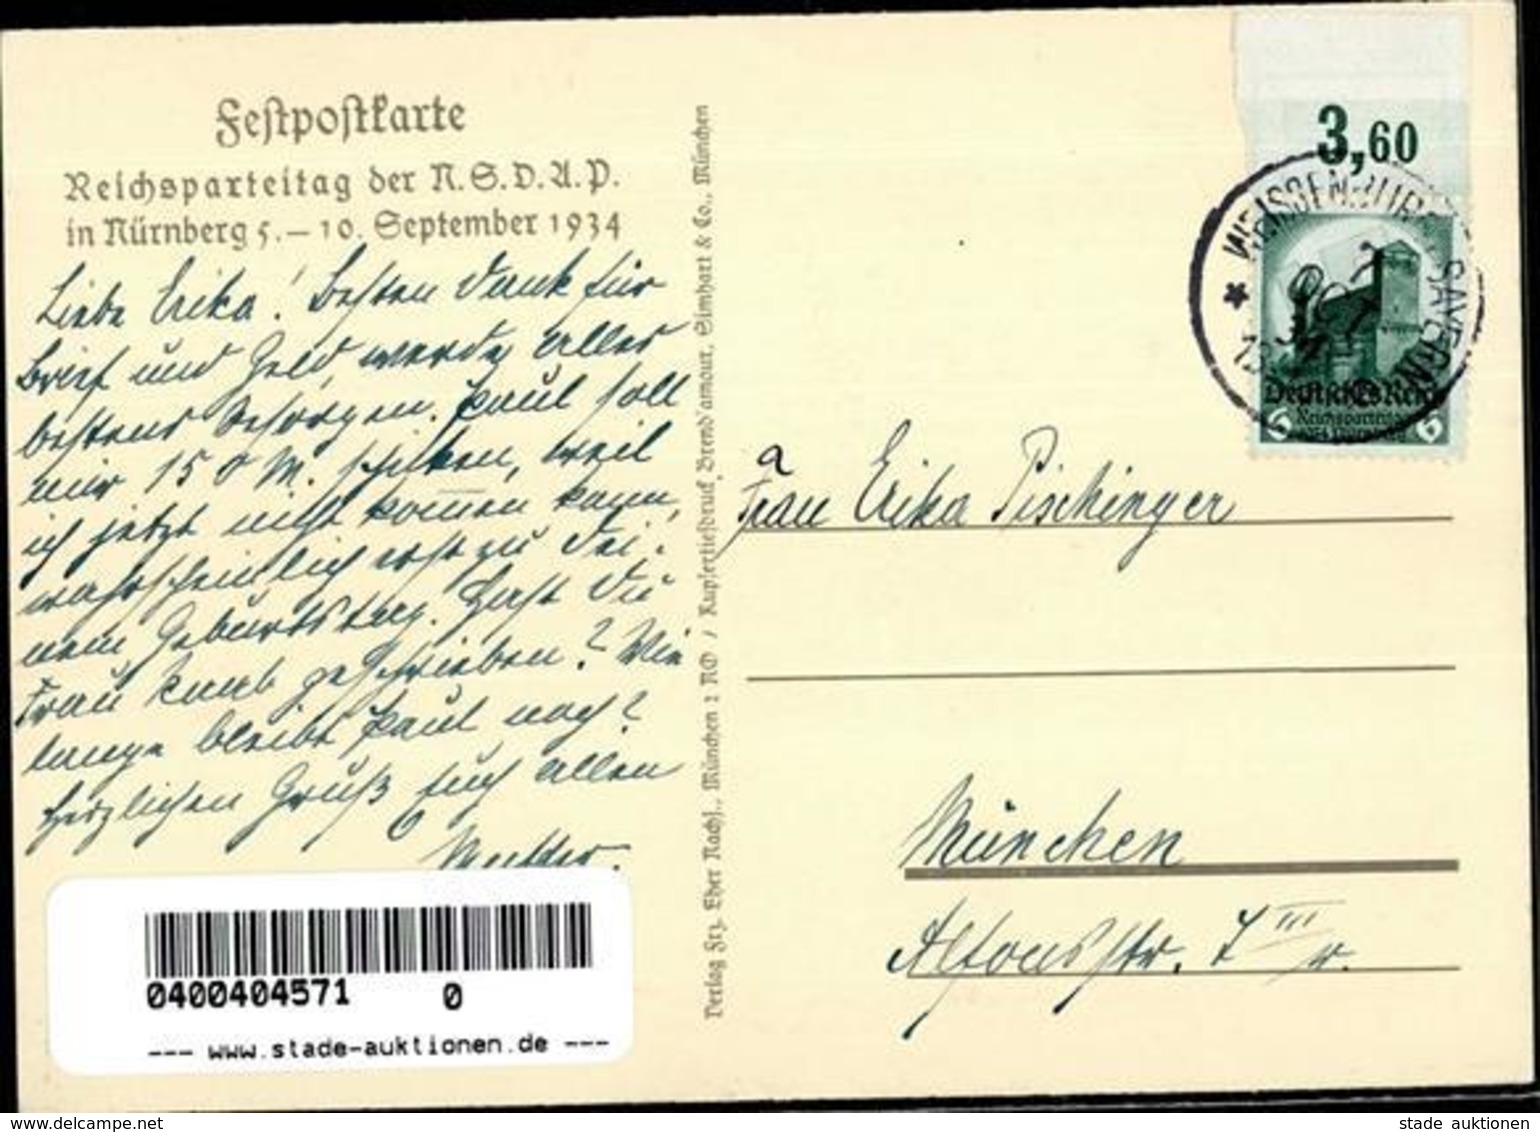 Festpostkarte
Reichsparteitag der N.S.D.A.P.
in Nürnberg 5.–10. September 1934
Liebe Erika! Besten Dank für
Brief und Geld werde alles
bestens besorgen. Paul soll
mir 150 M. schicken, weil
ich jetzt nicht kommen kann,
wahrscheinlich erst zu Dei-
nem Geburtstag. Hast Du
Frau geschrieben? Wie
lange bleibt Paul noch?
Herzlichen Gruß Euch allen
Mutter.
Verlag Frz. Eher Nachf., München 2 NO / Kupfertiefdruck Brend'amour, Simhart & Co., München
3,60
* WEISSENBURG BAYERN
Deutsches Reich
6 Reichsparteitag 6
Frau Erika Pischinger
München
Alfonsstr. 7 III r.
0400404571 0
--- www.stade-auktionen.de ---
stade auktionen